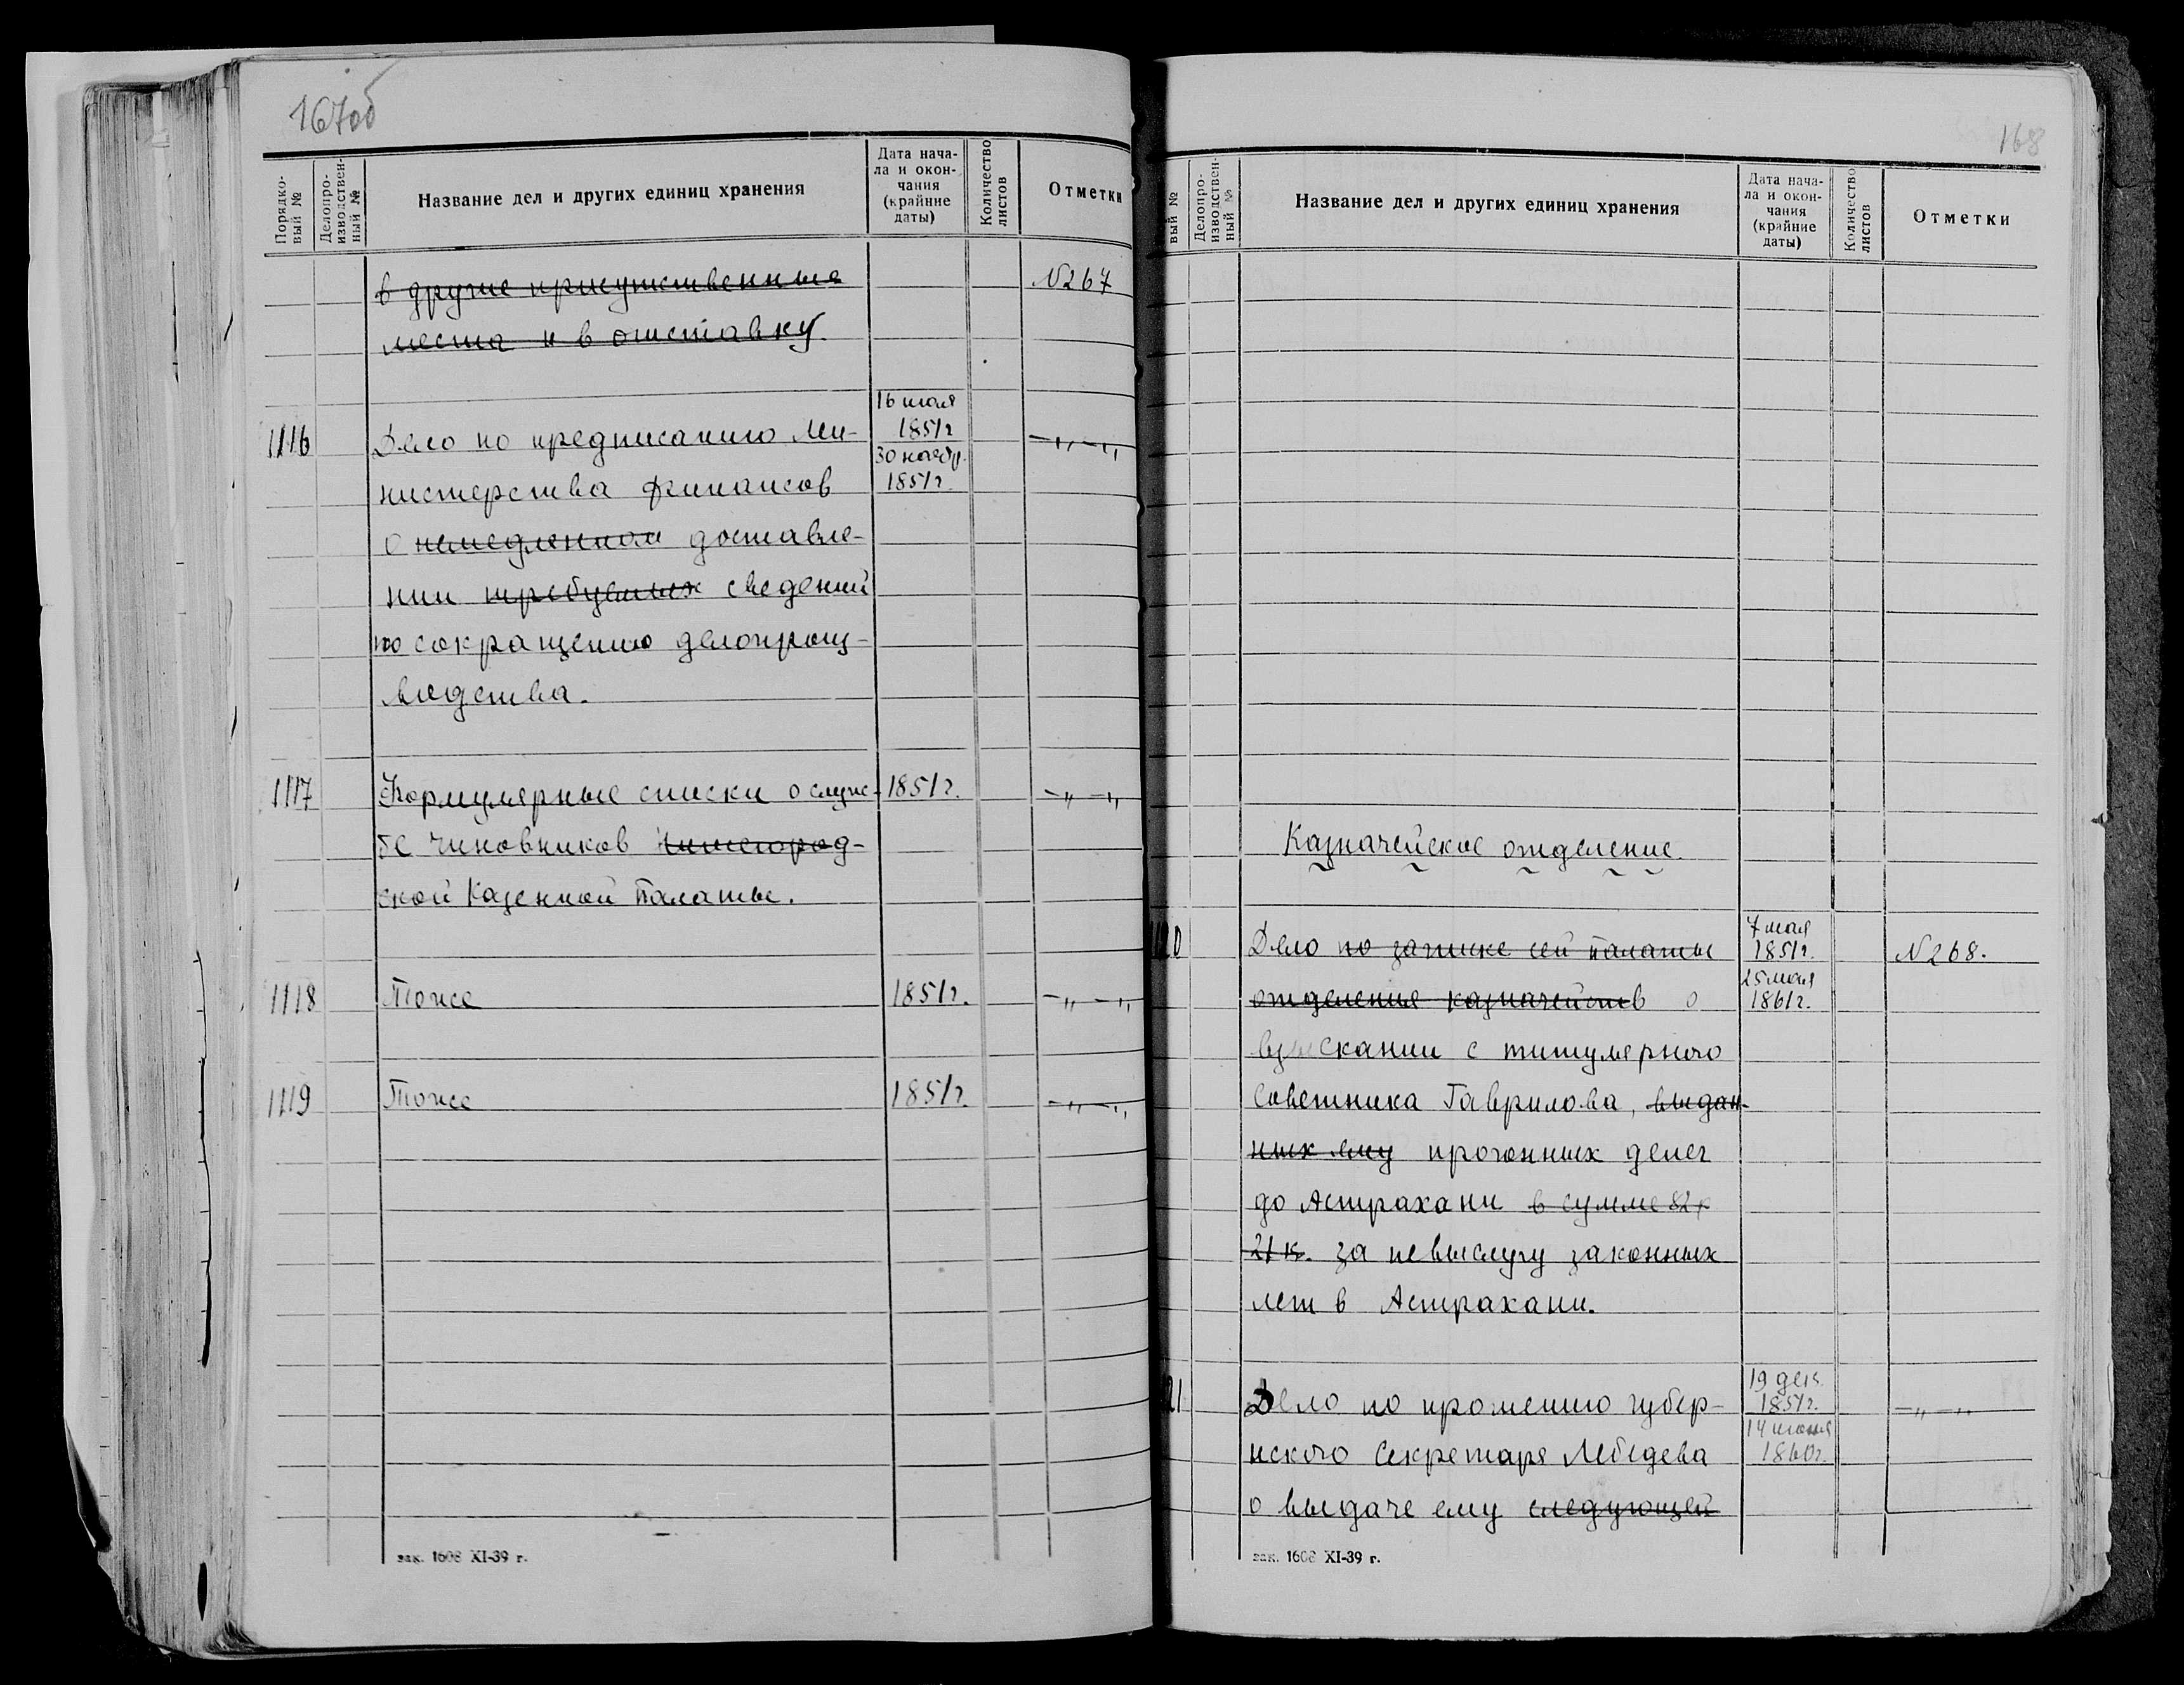 167об
Порядко-
вый №
Делопро-
изводствен-
ный №
Название дел и других единиц хранения
Дата нача-
ла и окон-
чания
(крайние
даты)
Количество
листов
Отметки
в другие присутственные
N267
места и в отставку.
1116
Дело по предписанию Ми-
16 июля
1851г
30 ноябр.
1851г.
-„-„
нистерства финансов
о немедленном доставле-
нии требуемых сведений
по сокращению делопроиз-
водства.
1117
Формулярные списки о служ-
1851г.
-„-„
бе чиновников Нижегород-
ской Казенной Палаты.
1118
Тоже
1851г.
-„-„
1119
Тоже
1851г.
-„-„
зак. 1608 XI-39 г.
168
вый №
Делопро-
изводствен-
ный №
Название дел и других единиц хранения
Дата нача-
ла и окон-
чания
(крайние
даты)
Количество
листов
Отметки
Казначейское отделение.
20
Дело по записке сей палаты
7 мая
1851г.
25 мая
1861г.
N268.
отделения казначейств о
взыскании с титулярного
Советника Гаврилова, выдан-
ных ему прогонных денег
до Астрахани в сумме 82р
21 к. за невыслугу законных
лет в Астрахани.
21
Дело по прошению губер-
19 дек.
1851г.
14 июня
1860г.
-„-„
нского Секретаря Лебедева
о выдаче ему следующей
зак. 1608 XI-39 г.